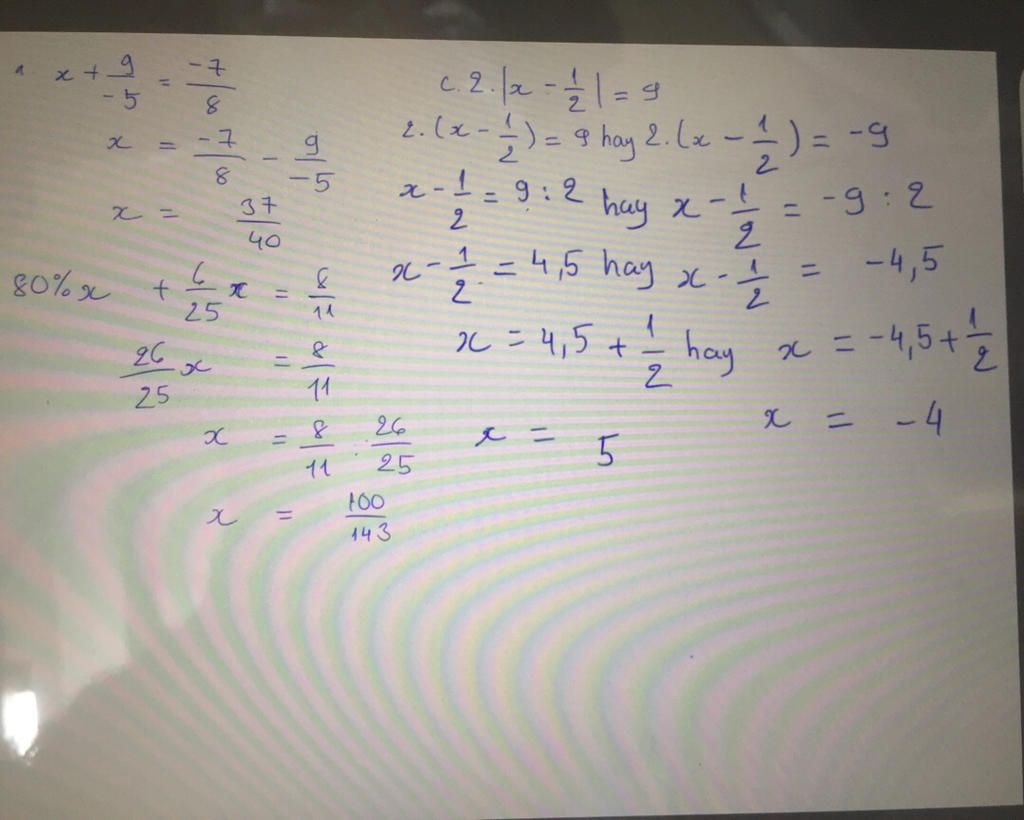 a. x + 9/-5 = -7/8
x = -7/8 - 9/-5
x = 37/40
80%x + 6/25 x = 8/11
26/25 x = 8/11
x = 8/11 : 26/25
x = 100/143
c. 2. |x - 1/2| = 9
2. (x - 1/2) = 9 hay 2. (x - 1/2) = -9
x - 1/2 = 9 : 2 hay x - 1/2 = -9 : 2
x - 1/2 = 4,5 hay x - 1/2 = -4,5
x = 4,5 + 1/2 hay x = -4,5 + 1/2
x = 5 x = -4